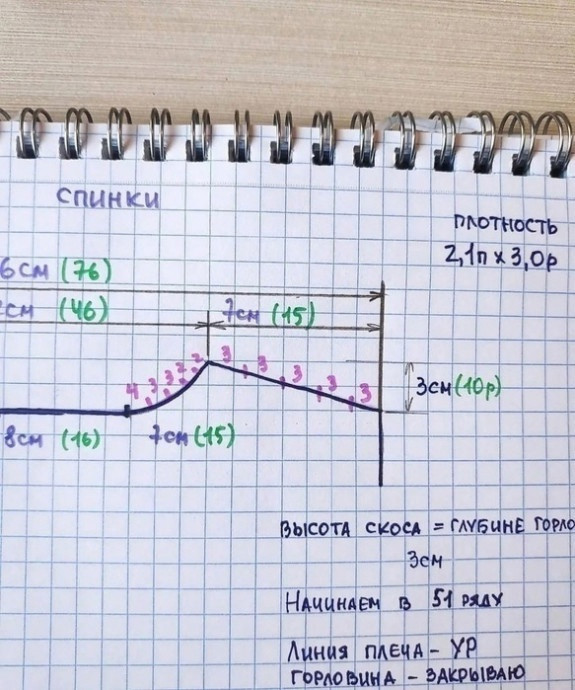 СПИНКИ
ПЛОТНОСТЬ
2,1п х 3,0р
6см (76)
см (46)
7см (15)
3 3 3 3 3
4 3 3 2 2
3см (10р)
8см (16)
7см (15)
ВЫСОТА СКОСА = ГЛУБИНЕ ГОРЛО
3см
НАЧИНАЕМ В 51 РЯДУ
ЛИНИЯ ПЛЕЧА - УР
ГОРЛОВИНА - ЗАКРЫВАЮ